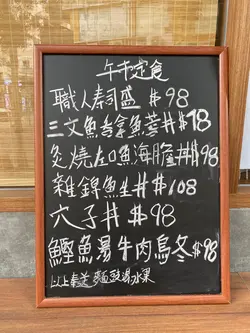 午市定食
職人壽司盛 $98
三文魚香拿魚蓉丼 $78
炙燒左口魚海膽丼 $98
雜錦魚生丼 $108
穴子丼 $98
鰹魚湯牛肉烏冬 $98
以上奉送 麵豉湯水果